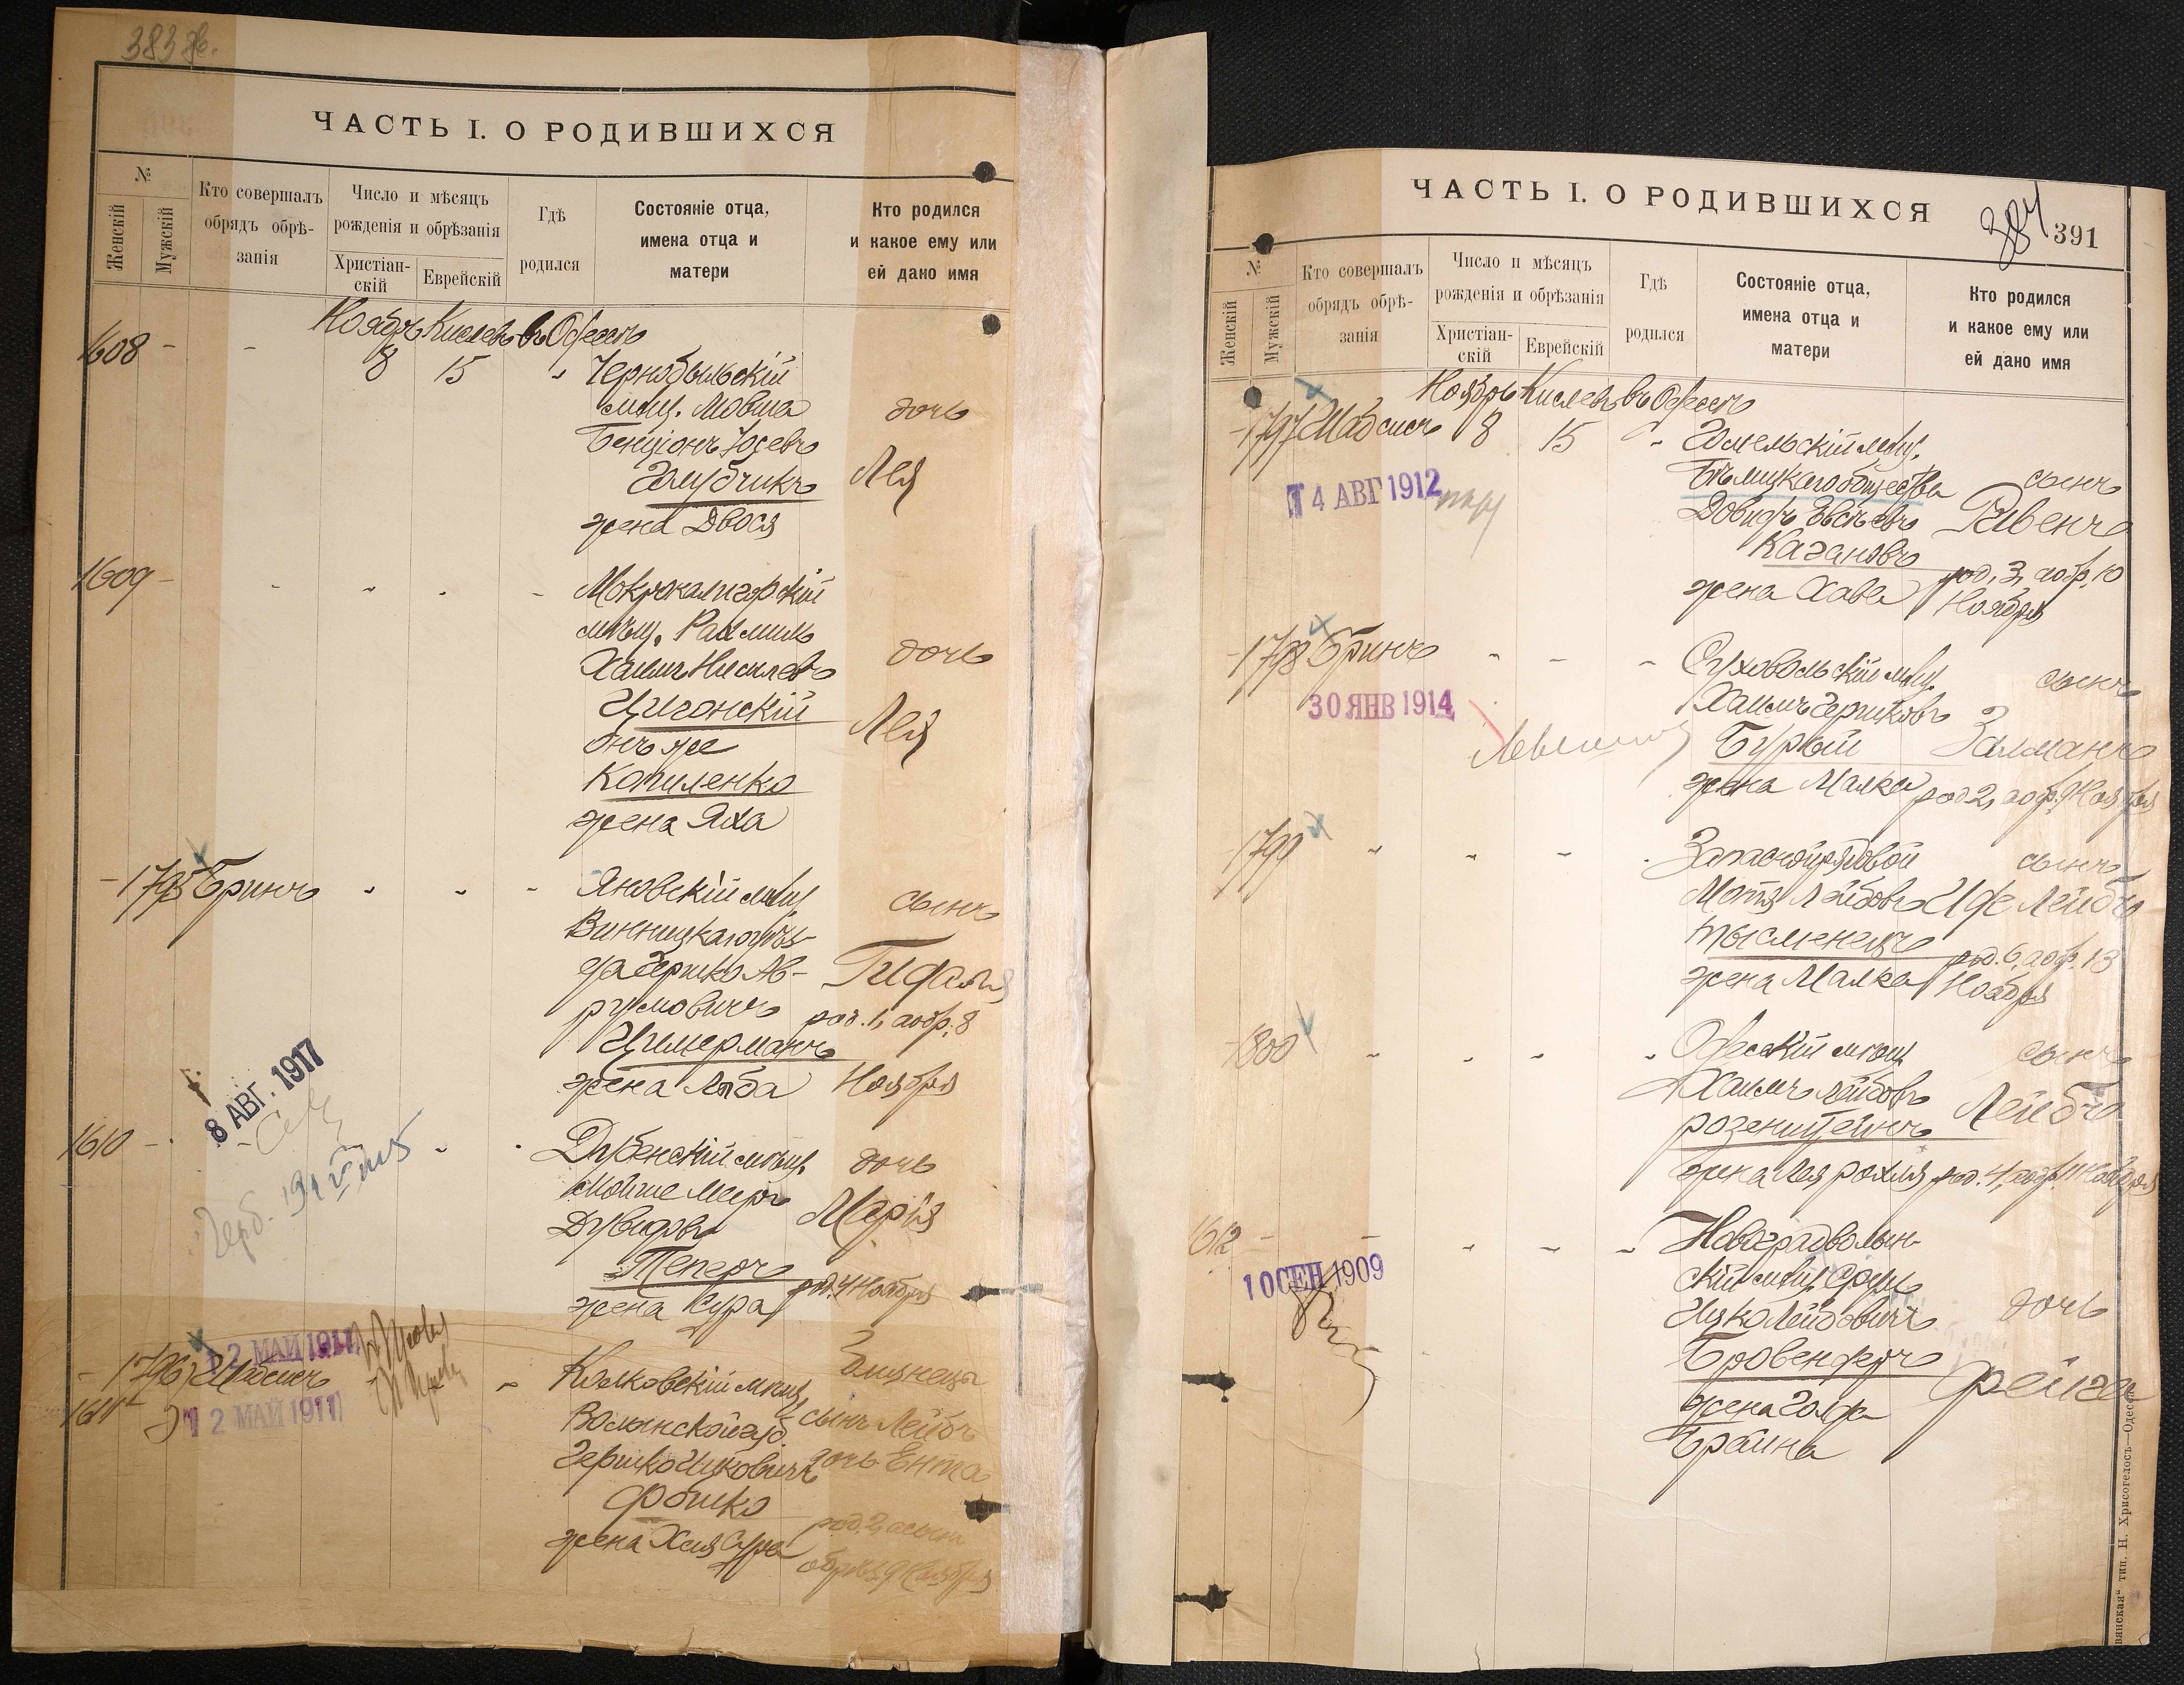 383 Ж.
ЧАСТЬ I. О РОДИВШИХСЯ
№
Женскій
Мужскій
Кто совершалъ
обрядъ обрѣ-
занія
Число и мѣсяцъ
рожденія и обрѣзанія
Христіан-
скій
Еврейскій
Гдѣ
родился
Состояніе отца,
имена отца и
матери
Кто родился
и какое ему или
ей дано имя
Ноябрь Кислевъ въ Одессѣ
1608 - - 8 15 " Чернобыльскій
мѣщ. Мовша
дочь
Бенціонъ Іосевъ
Голубчикъ
Лея
жена Двося
1609 - - " " - Мокрокалигорскій
мѣщ. Рахмиль
Хаимъ Нисилевъ
дочь
Цигонскій
Лея
онъ же
Копиленко
жена Яха
- 1795 Бринъ " " - Яновскій мѣщ
сынъ
Винницкаго уѣз-
да Гершко Ав-
Гидаль
румовичъ
род. 1, а обр. 8
Цимерманъ
жена Люба
Ноября
8 АВГ. 1917
1610 - " " Дубенскій мѣщ.
дочь
Мойше Мееръ
Марія
Дувидовъ
Теперъ
род. 4 Ноября
жена Сура
12 МАЙ 1911
близнецы
- 1796 Шабсисъ - Колковскій мѣщ
1611
12 МАЙ 1911
Волынской губ.
сынъ Лейбъ
Гершко Ицковичъ
дочь Ента
Фошко
род. 2, а сынъ
жена Хая Сура
обрѣз. 9 Ноября
ЧАСТЬ I. О РОДИВШИХСЯ
384
391
№
Женскій
Мужскій
Кто совершалъ
обрядъ обрѣ-
занія
Число и мѣсяцъ
рожденія и обрѣзанія
Христіан-
скій
Еврейскій
Гдѣ
родился
Состояніе отца,
имена отца и
матери
Кто родился
и какое ему или
ей дано имя
Ноябрь Кислевъ въ Одессѣ
- 1797 Шабсисъ 8 15 " Гомельскій мѣщ.
Бѣлицкаго общества
сынъ
14 АВГ 1912
Довидъ Евсѣевъ
Рувенъ
Кагановъ
род. 3, а обр. 10
жена Хава
Ноября
- 1798 Бринъ " - - Суховольскій мѣщ.
сынъ
30 ЯНВ 1914
Хаимъ Гершковъ
Бурый
Залманъ
жена Малка
род 2, а обр. 9 Ноября
- 1799 " " - " Запасной рядовой
сынъ
Мотя Лейбовъ
Иде Лейбъ
Тысменецъ
род. 6, а обр. 13
жена Малка
Ноября
- 1800 " " - " Одесскій мѣщ
сынъ
Хаимъ Лейбовъ
Лейбъ
розенштейнъ
жена Лея рохля
род. 4, а обр. 11 Ноября
1612 - - " - - Новоградволын-
10 СЕН 1909
скій мѣщ. Сруль
Ицко Лейбовичъ
дочь
Бровендеръ
Фейга
жена Голда
Браина
вянская" тип. Н. Хрисогелосъ—Одесса.